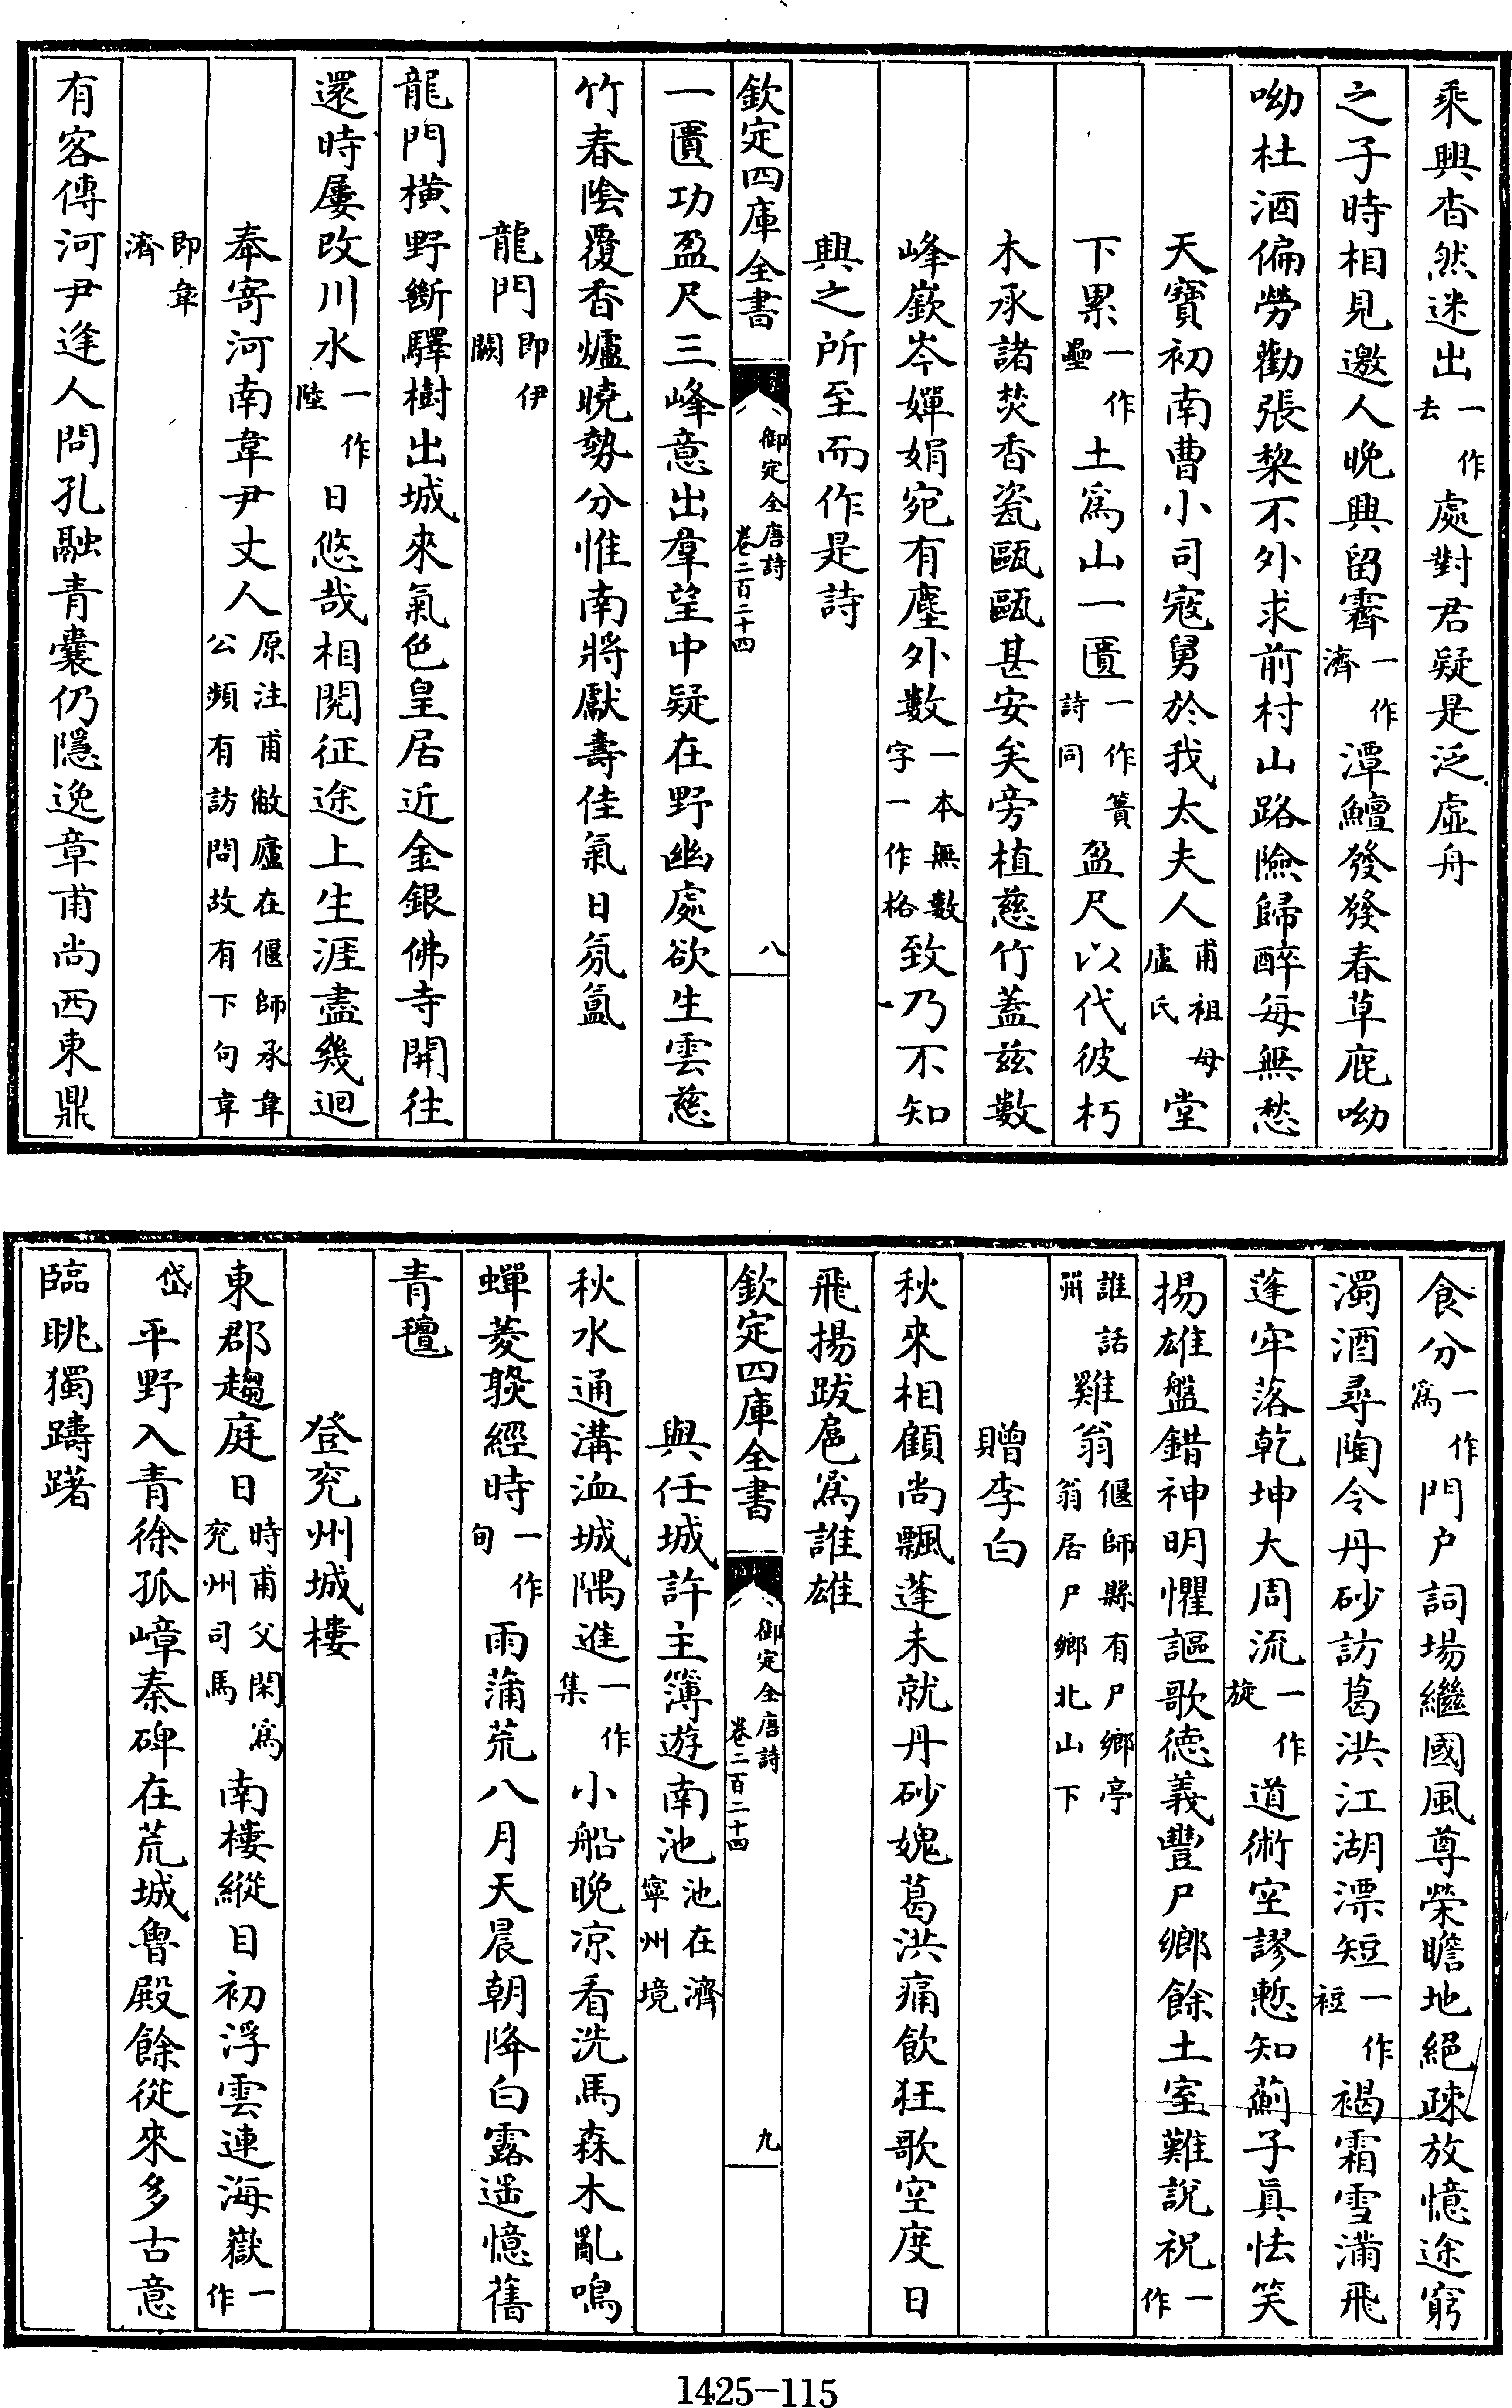 乘興杳然迷出一作去處對君疑是泛虛舟
之子時相見邀人晚興留霽一作濟潭鱣發發春草鹿呦
呦杜酒偏勞勸張棃不外求前村山路險歸醉每無愁
天寶初南曹小司寇舅於我太夫人甫祖母盧氏堂
下累一作壘土爲山一匱一作簣詩同盈尺以代彼朽
木承諸焚香瓷甌甌甚安矣旁植慈竹蓋茲數
峰嶔岑嬋娟宛有塵外數一本無數字一作格致乃不知
興之所至而作是詩
欽定四庫全書 御定全唐詩卷二百二十四 八
一匱功盈尺三峰意出羣望中疑在野幽處欲生雲慈
竹春陰覆香爐曉勢分惟南將獻壽佳氣日氛氳
龍門即伊闕
龍門橫野斷驛樹出城來氣色皇居近金銀佛寺開往
還時屢改川水一作陸日悠哉相閱征途上生涯盡幾迴
奉寄河南韋尹丈人原注甫敝廬在偃師承韋公頻有訪問故有下句韋
即韋濟
有客傳河尹逢人問孔融青囊仍隱逸章甫尚西東鼎
食分一作爲門户詞場繼國風尊榮瞻地絕疎放憶途窮
濁酒尋陶令丹砂訪葛洪江湖漂短一作裋褐霜雪滿飛
蓬牢落乾坤大周流一作旋道術空謬慙知薊子真怯笑
揚雄盤錯神明懼謳歌德義豐尸鄉餘土室難說祝一作
誰話州雞翁偃師縣有尸鄉亭翁居尸鄉北山下
贈李白
秋來相顧尚飄蓬未就丹砂媿葛洪痛飲狂歌空度日
飛揚跋扈爲誰雄
欽定四庫全書 御定全唐詩卷二百二十四 九
與任城許主簿遊南池池在濟寧州境
秋水通溝洫城隅進一作集小船晚凉看洗馬森木亂鳴
蟬菱熟經時一作旬雨蒲荒八月天晨朝降白露遥憶舊
青氊
登兖州城樓
東郡趨庭日時甫父閑爲兖州司馬南樓縱目初浮雲連海嶽一作
岱平野入青徐孤嶂秦碑在荒城魯殿餘從來多古意
臨眺獨躊躇
1425-115